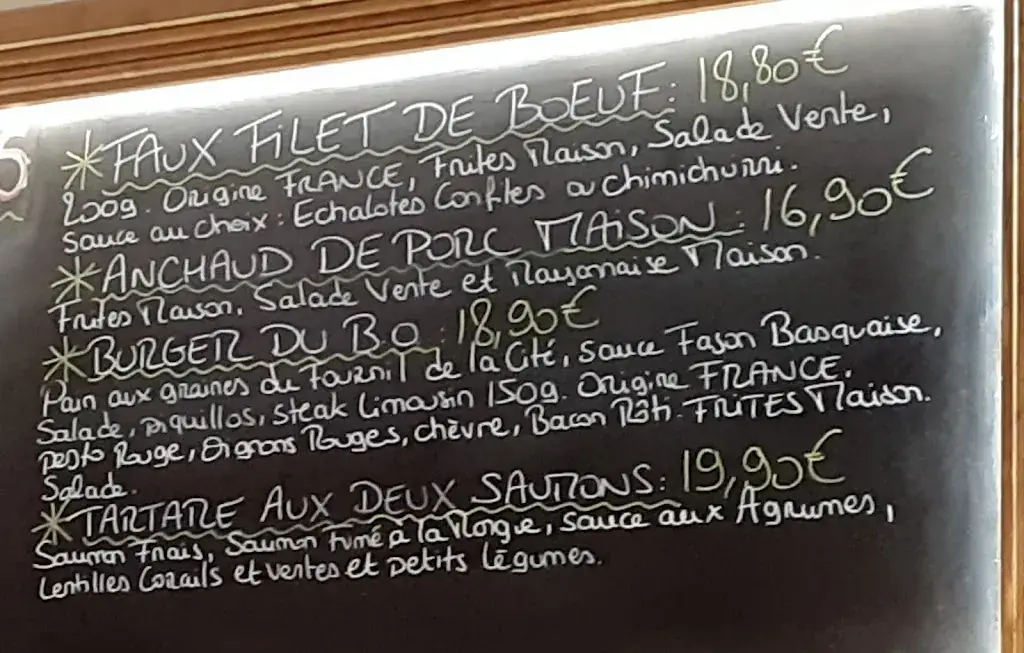 * FAUX FILET DE BOEUF : 18,80€
200g. Origine FRANCE, Frites Maison, Salade Verte,
Sauce au choix : Echalotes Confites ou chimichurri.
* ANCHAUD DE PORC MAISON : 16,90€
Frites Maison, Salade Verte et Mayonnaise Maison.
* BURGER DU B.O : 18,90€
Pain aux graines du Fournil de la Cité, Sauce Fason Basquaise,
Salade, piquillos, Steak Limousin 150g. Origine FRANCE.
pesto Rouge, Oignons Rouges, chèvre, Bacon Rôti. FRITES Maison.
Salade.
* TARTARE AUX DEUX SAUMONS : 19,90€
Saumon Frais, Saumon fumé à la Morgue, Sauce aux Agrumes,
Lentilles Corails et vertes et petits légumes.